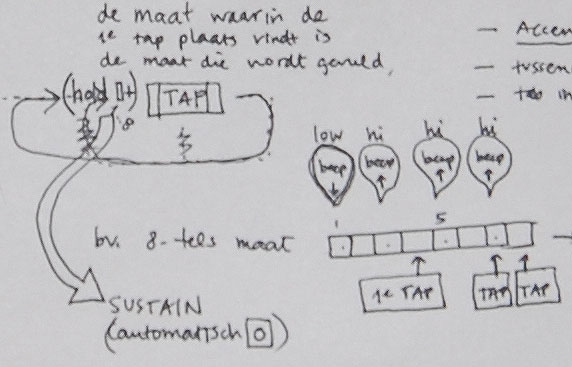 de maat waarin de
1e tap plaats vindt is
de maat die wordt gevuld,
— Accen
— tussen
— in
(hold +) TAP
8
low hi hi hi
beep beep beep beep
1 5
bv. 8-tels maat
1e TAP TAP TAP
SUSTAIN
(automatisch O)